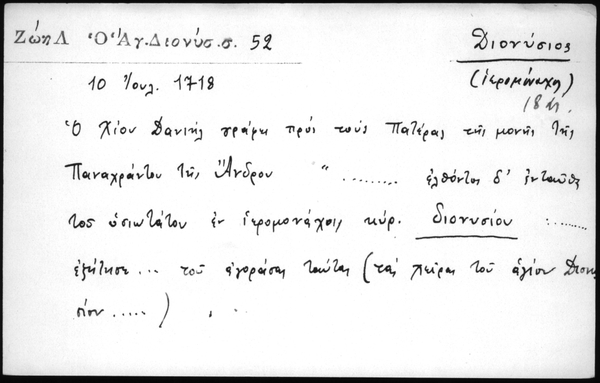 Ζώη Λ Ὁ Ἅγ. Διονύσ. σ. 52
Διονύσιος
(ἱερομόναχος)
10 Ἰουλ. 1718
18 αἰ.
Ὁ Χίου Δανιήλ γράφει πρός τούς Πατέρας τῆς μονῆς τῆς
Παναχράντου τῆς Ἄνδρου " ........ ἐλθόντος δ' ἐνταῦθα
τοῦ ὁσιωτάτου ἐν ἱερομονάχοις κύρ. Διονυσίου ........
ἐζήτησε ... τοῦ ἀγοράσαι ταύτας (τάς χεῖρας τοῦ ἁγίου Διονυ
σίου .....)